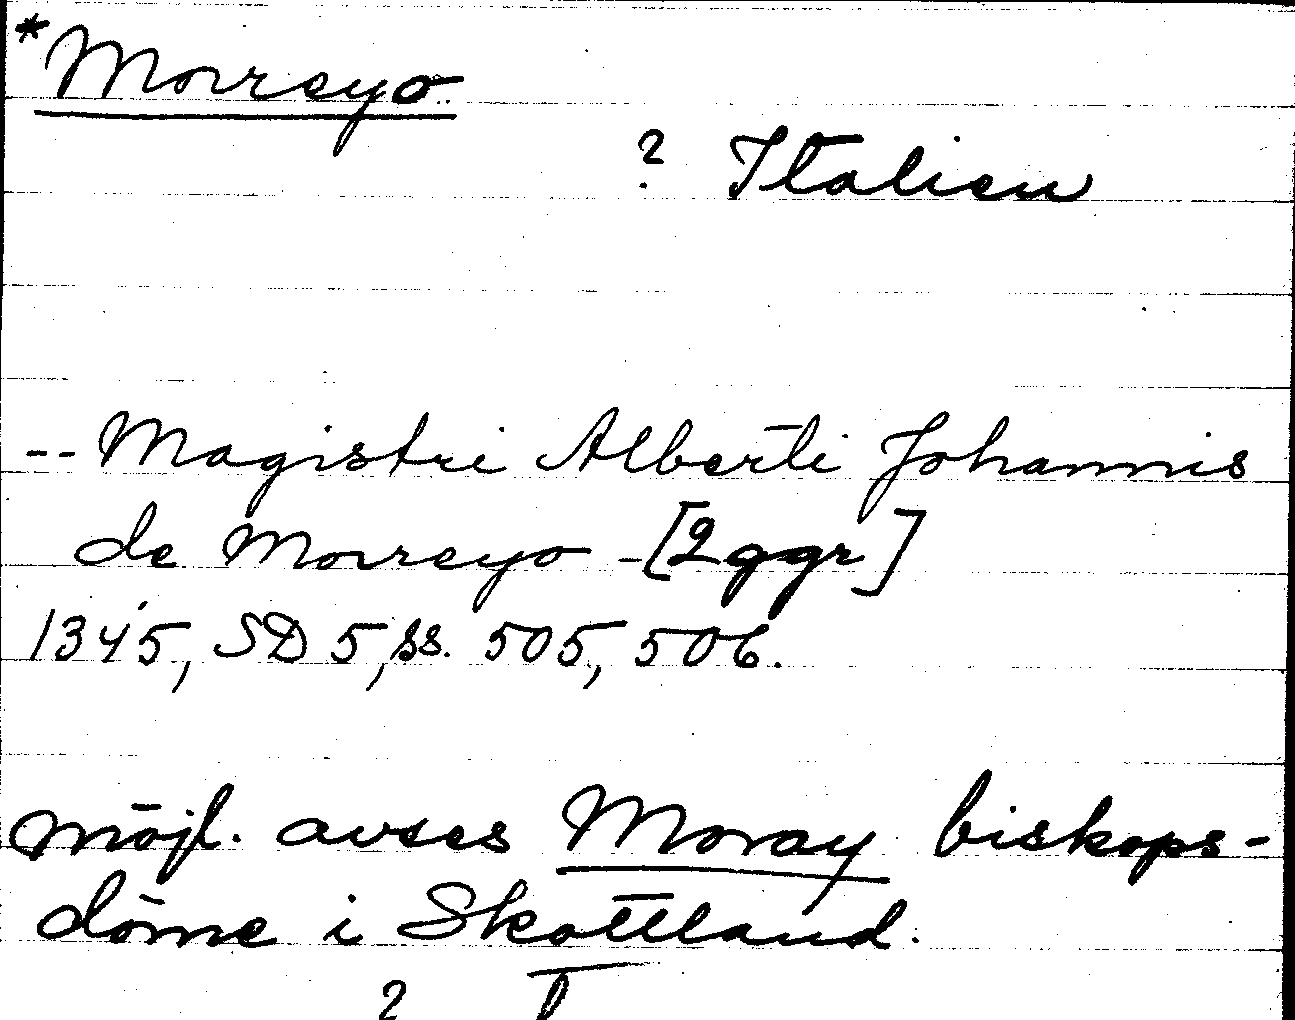 *Morreyo
? Italien
-- Magistri Alberti Johannis
de Morreyo - [2ggr]
1345, SD 5, ss. 505, 506.
möjl. avses Moray biskops-
döme i Skottland.
?